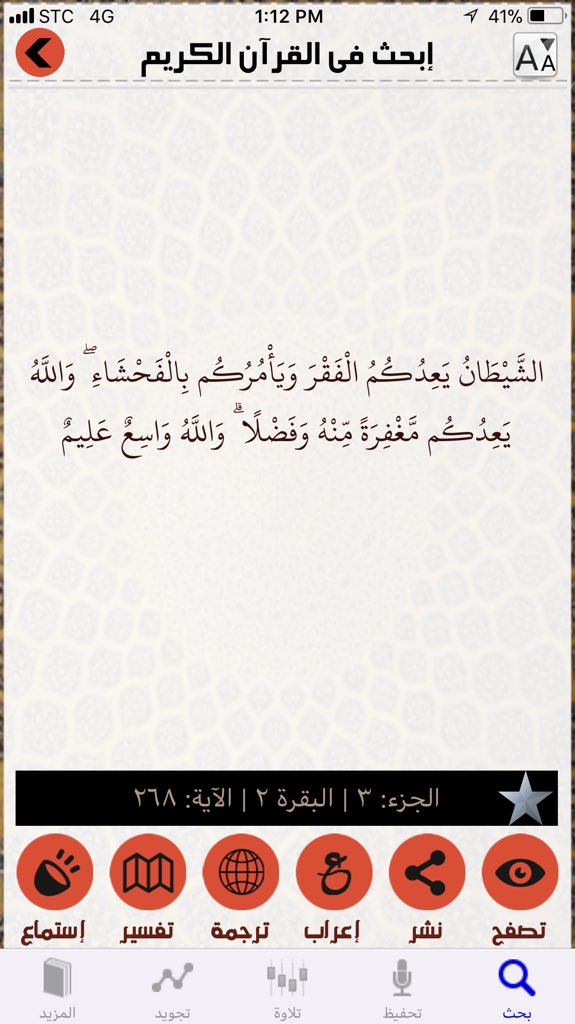 STC 4G 1:12 PM 41%
إبحث فى القرآن الكريم
AA
الشَّيْطَانُ يَعِدُكُمُ الْفَقْرَ وَيَأْمُرُكُم بِالْفَحْشَاءِ ۖ وَاللَّهُ
يَعِدُكُم مَّغْفِرَةً مِّنْهُ وَفَضْلًا ۗ وَاللَّهُ وَاسِعٌ عَلِيمٌ
الجزء: ٣ | البقرة ٢ | الآية: ٢٦٨
تصفح نشر إعراب ترجمة تفسير إستماع
بحث تحفيظ تلاوة تجويد المزيد